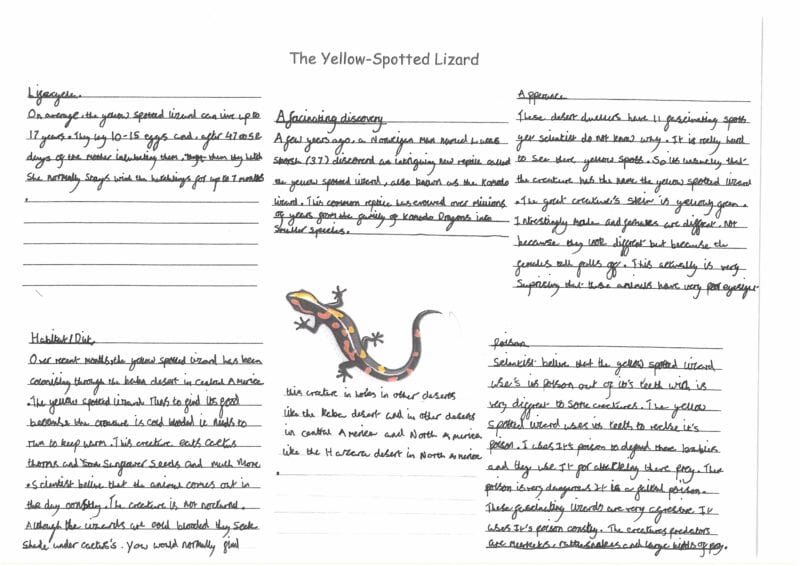 The Yellow-Spotted Lizard
Lifecycle.
On average, the yellow spotted lizard can live up to
17 years. They lay 10-15 eggs and, after 47 or 58
days of the mother incubating them, them they hatch
She normally stays with the hatchlings for up to 7 months
.
A facinating discovery
A few years ago, a Norweigan Man named Lucas
(37) discoverd an intriguing new reptile called
the yellow spotted lizard, also known as the Komodo
lizard. This common reptile has evolved over millions
of years from the family of Komodo Dragons into
smaller species.
Apperance
These desert dwellers have 11 fascinating spots
yet scientist do not know why. It is really hard
to see there yellow spots. So its unusually that
the creature has the name the yellow spotted lizard
. The great creature's skin is yellowy green.
Interestingly male and females are diffrent. Not
because they look diffrent but because the
females tail falls off. This actually is very
Suprising that these animals have very poor eyesight
Habitat/Diet.
Over recent months, the yellow spotted lizard has been
colonising through the desert in central America
. The yellow spotted lizard to find its food
because the creature is cold blooded it needs to
run to keep warm. This creature eats cactus
thorns and some Sunflower Seeds and much more
. Scientist believe that the animal comes out in
the day constly. The creature is not nocturnal.
Although the lizards are cold blooded they seek
shade under cactus's. You would normally find
this creature in holes in other deserts
like the desert and in other deserts
in central America and North America
like the desert in North America
.
Poison
Scientist belive that the yellow spotted lizard
use's its poison out of it's teeth which is
very diffrent to some creatures. The yellow
spotted lizard uses its teeth to its
poison. I uses it's poison to defend there babies
and they use it for attacking there prey. Their
poison is very dangerous it is a poison.
These fascinating lizards are very agressive. It
uses it's poison constly. The creatures predators
are Meerkats, rattlesnakes and large birds of prey.